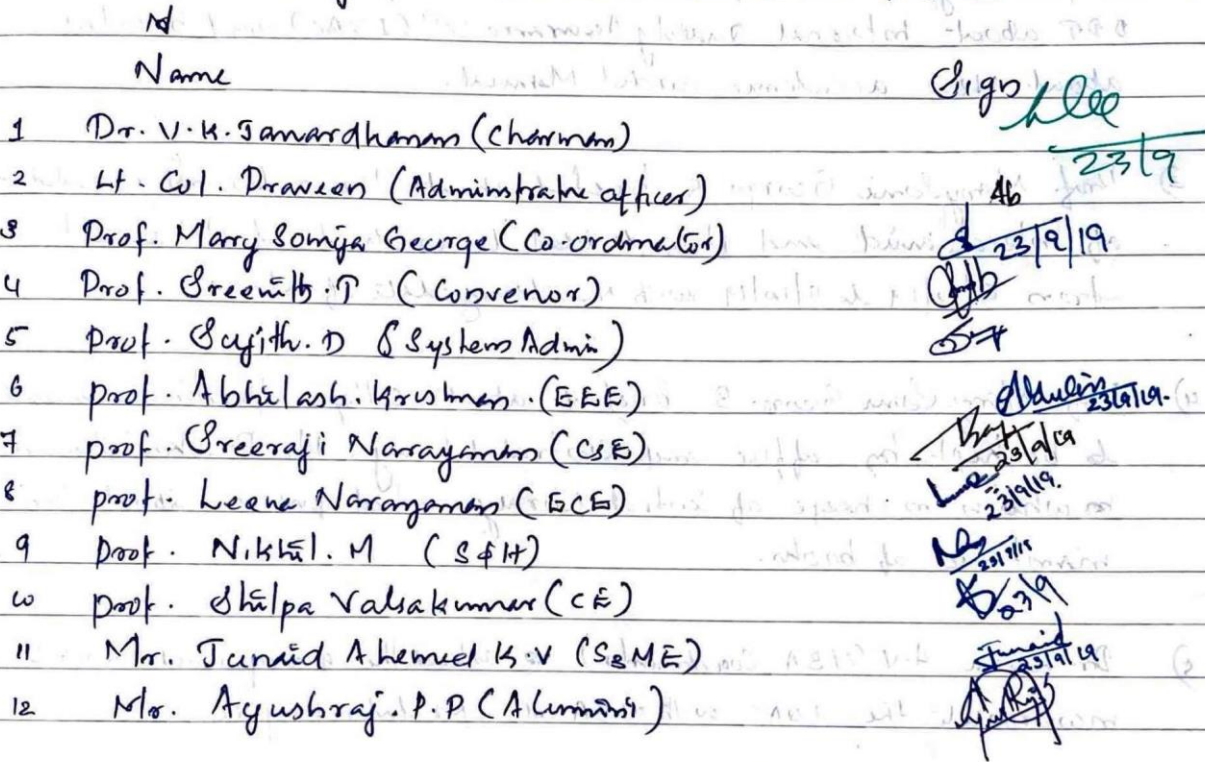 Name Sign
23/9
1 Dr. V.K. Janardhanan (Chairman)
2 Lt. Col. Praveen (Adminstrative officer) Ab
3 Prof. Mary Somija George (Co-ordinator) 23/9/19
4 Prof. Sreenith.T (Convenor)
5 Prof. Sujith.D (System Admin)
6 prof. Abhilash.Krishnan.(EEE) 23/9/19.
7 prof. Sreeraji Narayanan (CSE) 23/9/19
8 prof. Leena Narayanan (ECE) 23/9/19.
9 prof. Nikhil.M (S&H) 23/9/19
10 prof. Shilpa Valsakumar (CE) 23/9
11 Mr. Junaid Ahemed K.V (S3ME) Junaid 23/9/19
12 Mr. Ayushraj.P.P (Alumini)